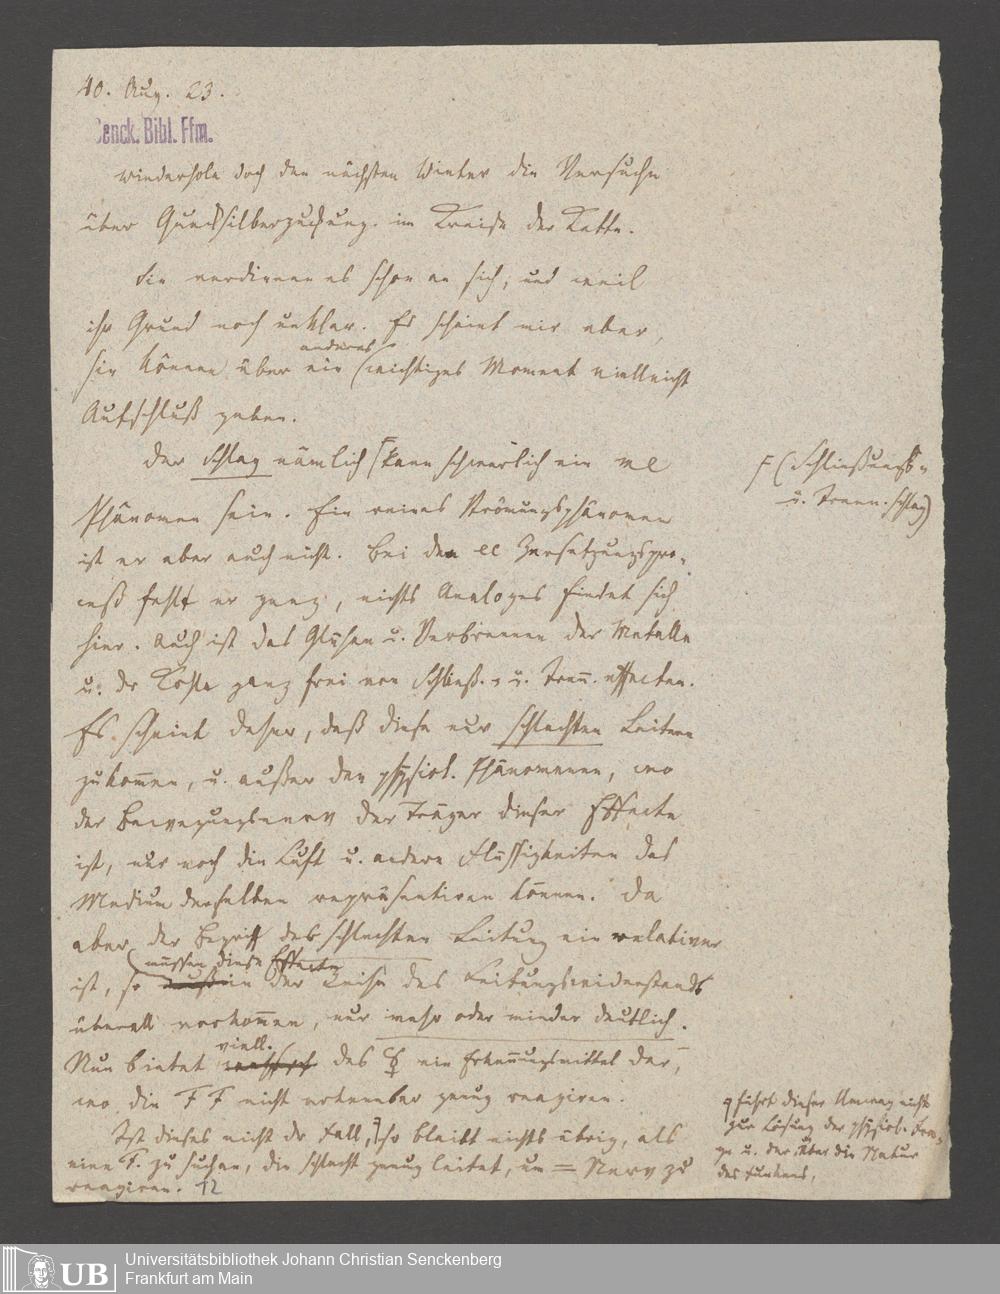 10. Aug. 23.
Senck. Bibl. Ffm.
wiederhole doch den nächsten Winter die Versuche
über Quecksilberzuckung. im Kreise der Kette.
Sie verdienen es schon an sich, und weil
ihr Grund noch unklar. Es scheint mir aber,
sie können über ein anderes wichtiges Moment vielleicht
Aufschluß geben.
Der Schlag nämlich kann schwerlich ein
Phänomen sein. Ein reines Strömungsphänomen
ist er aber auch nicht. Bei dem Zersetzungspro-
ceß fehlt er ganz, nichts Analoges findet sich
hier. Auch ist das Glühen u. Verbrennen der Metalle
u. der Kohle ganz frei von Schließ.- u. Trenn.effecten.
Es scheint daher, daß diese nur schlechten Leitern
zukommen, u. außer den physiol. Phänomenen, wo
der Bewegungsnerv der Träger dieser Effecte
ist, nur noch die Luft u. andere Flüssigkeiten das
Medium derselben repräsentiren können. Da
aber der Begriff des schlechten Leitung ein relativer
müssen diese Effecte
ist, so in der Reihe des Leitungswiderstands
überall vorkommen, nur mehr oder minder deutlich.
viell.
Nun bietet das ☿ ein Erkennungsmittel dar,
wo die F F nicht erkennbar genug reagiren.
Ist dieses nicht der Fall, so bleibt nichts übrig, als
eine F. zu suchen, die schlecht genug leitet, um = Nerv zu
reagiren. 12
F (Schließungs-
u. Trenn.schlag)
führt dieser Umweg nicht
zur Lösung der physiol. Fra-
ge u. der über die Natur
des Funkens,
UB
Universitätsbibliothek Johann Christian Senckenberg
Frankfurt am Main